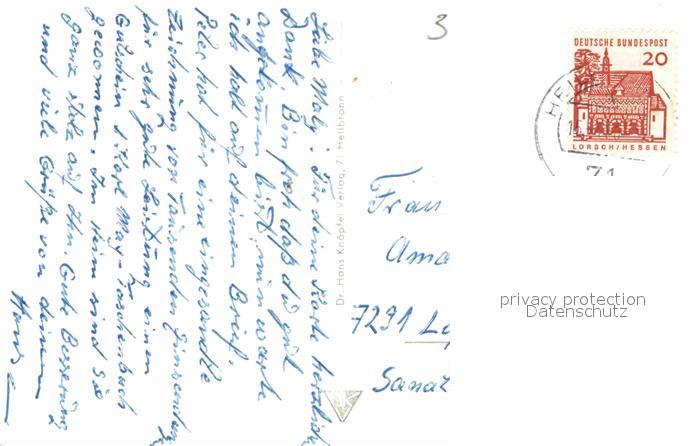 Liebe Maly! Für deine Karte herzlich
Dank. Bin froh daß du gut
angekommen bist. Nun warte
ich halt auf deinen Brief.
Peter hat für eine eingesandte
Zeichnung von Tausenden Einsendern
für sehr gute Leistung einen
Gutschein 1 Karl May-Taschenbuch
gewonnen. Im Heim sind sie
ganz stolz auf ihn. Gute Besserung
und viele Grüße von deinem
Hans
Dr. Hans Knöpfel Verlag, 71 Heilbronn
3
DEUTSCHE BUNDESPOST
20
LORSCH/HESSEN
HE
71
Frau
Ama
7291 Lo
Sanat
privacy protection
Datenschutz